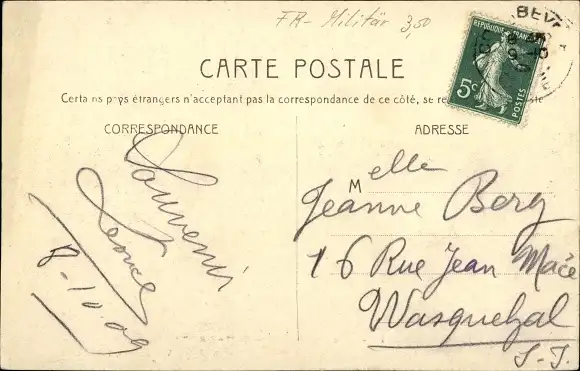 FR- Militär 3,50
RÉPUBLIQUE FRANÇAISE
5c
POSTES
CARTE POSTALE
Certains pays étrangers n'acceptant pas la correspondance de ce côté, se re
CORRESPONDANCE
ADRESSE
Souvenir
Léonce
8-10-09
Melle
Jeanne Berg
16 Rue Jean Macé
Wasquehal